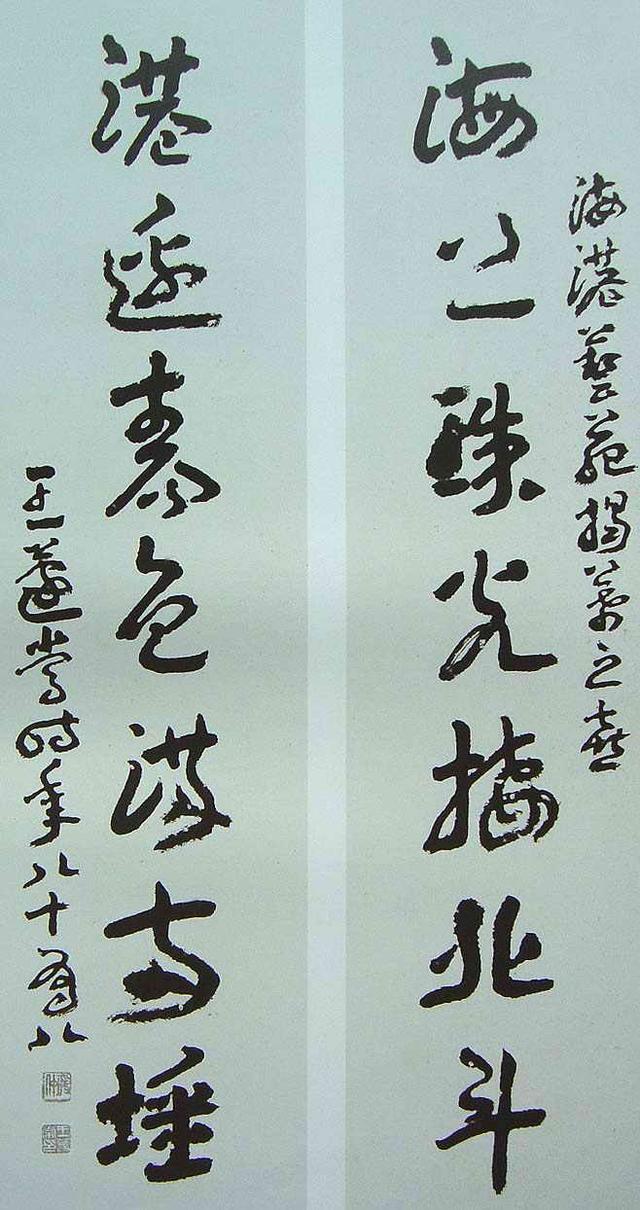 海港藝苑揭幕之喜
海上珠光搖北斗
港邊春色滿南陲
王蘧常時年八十有八